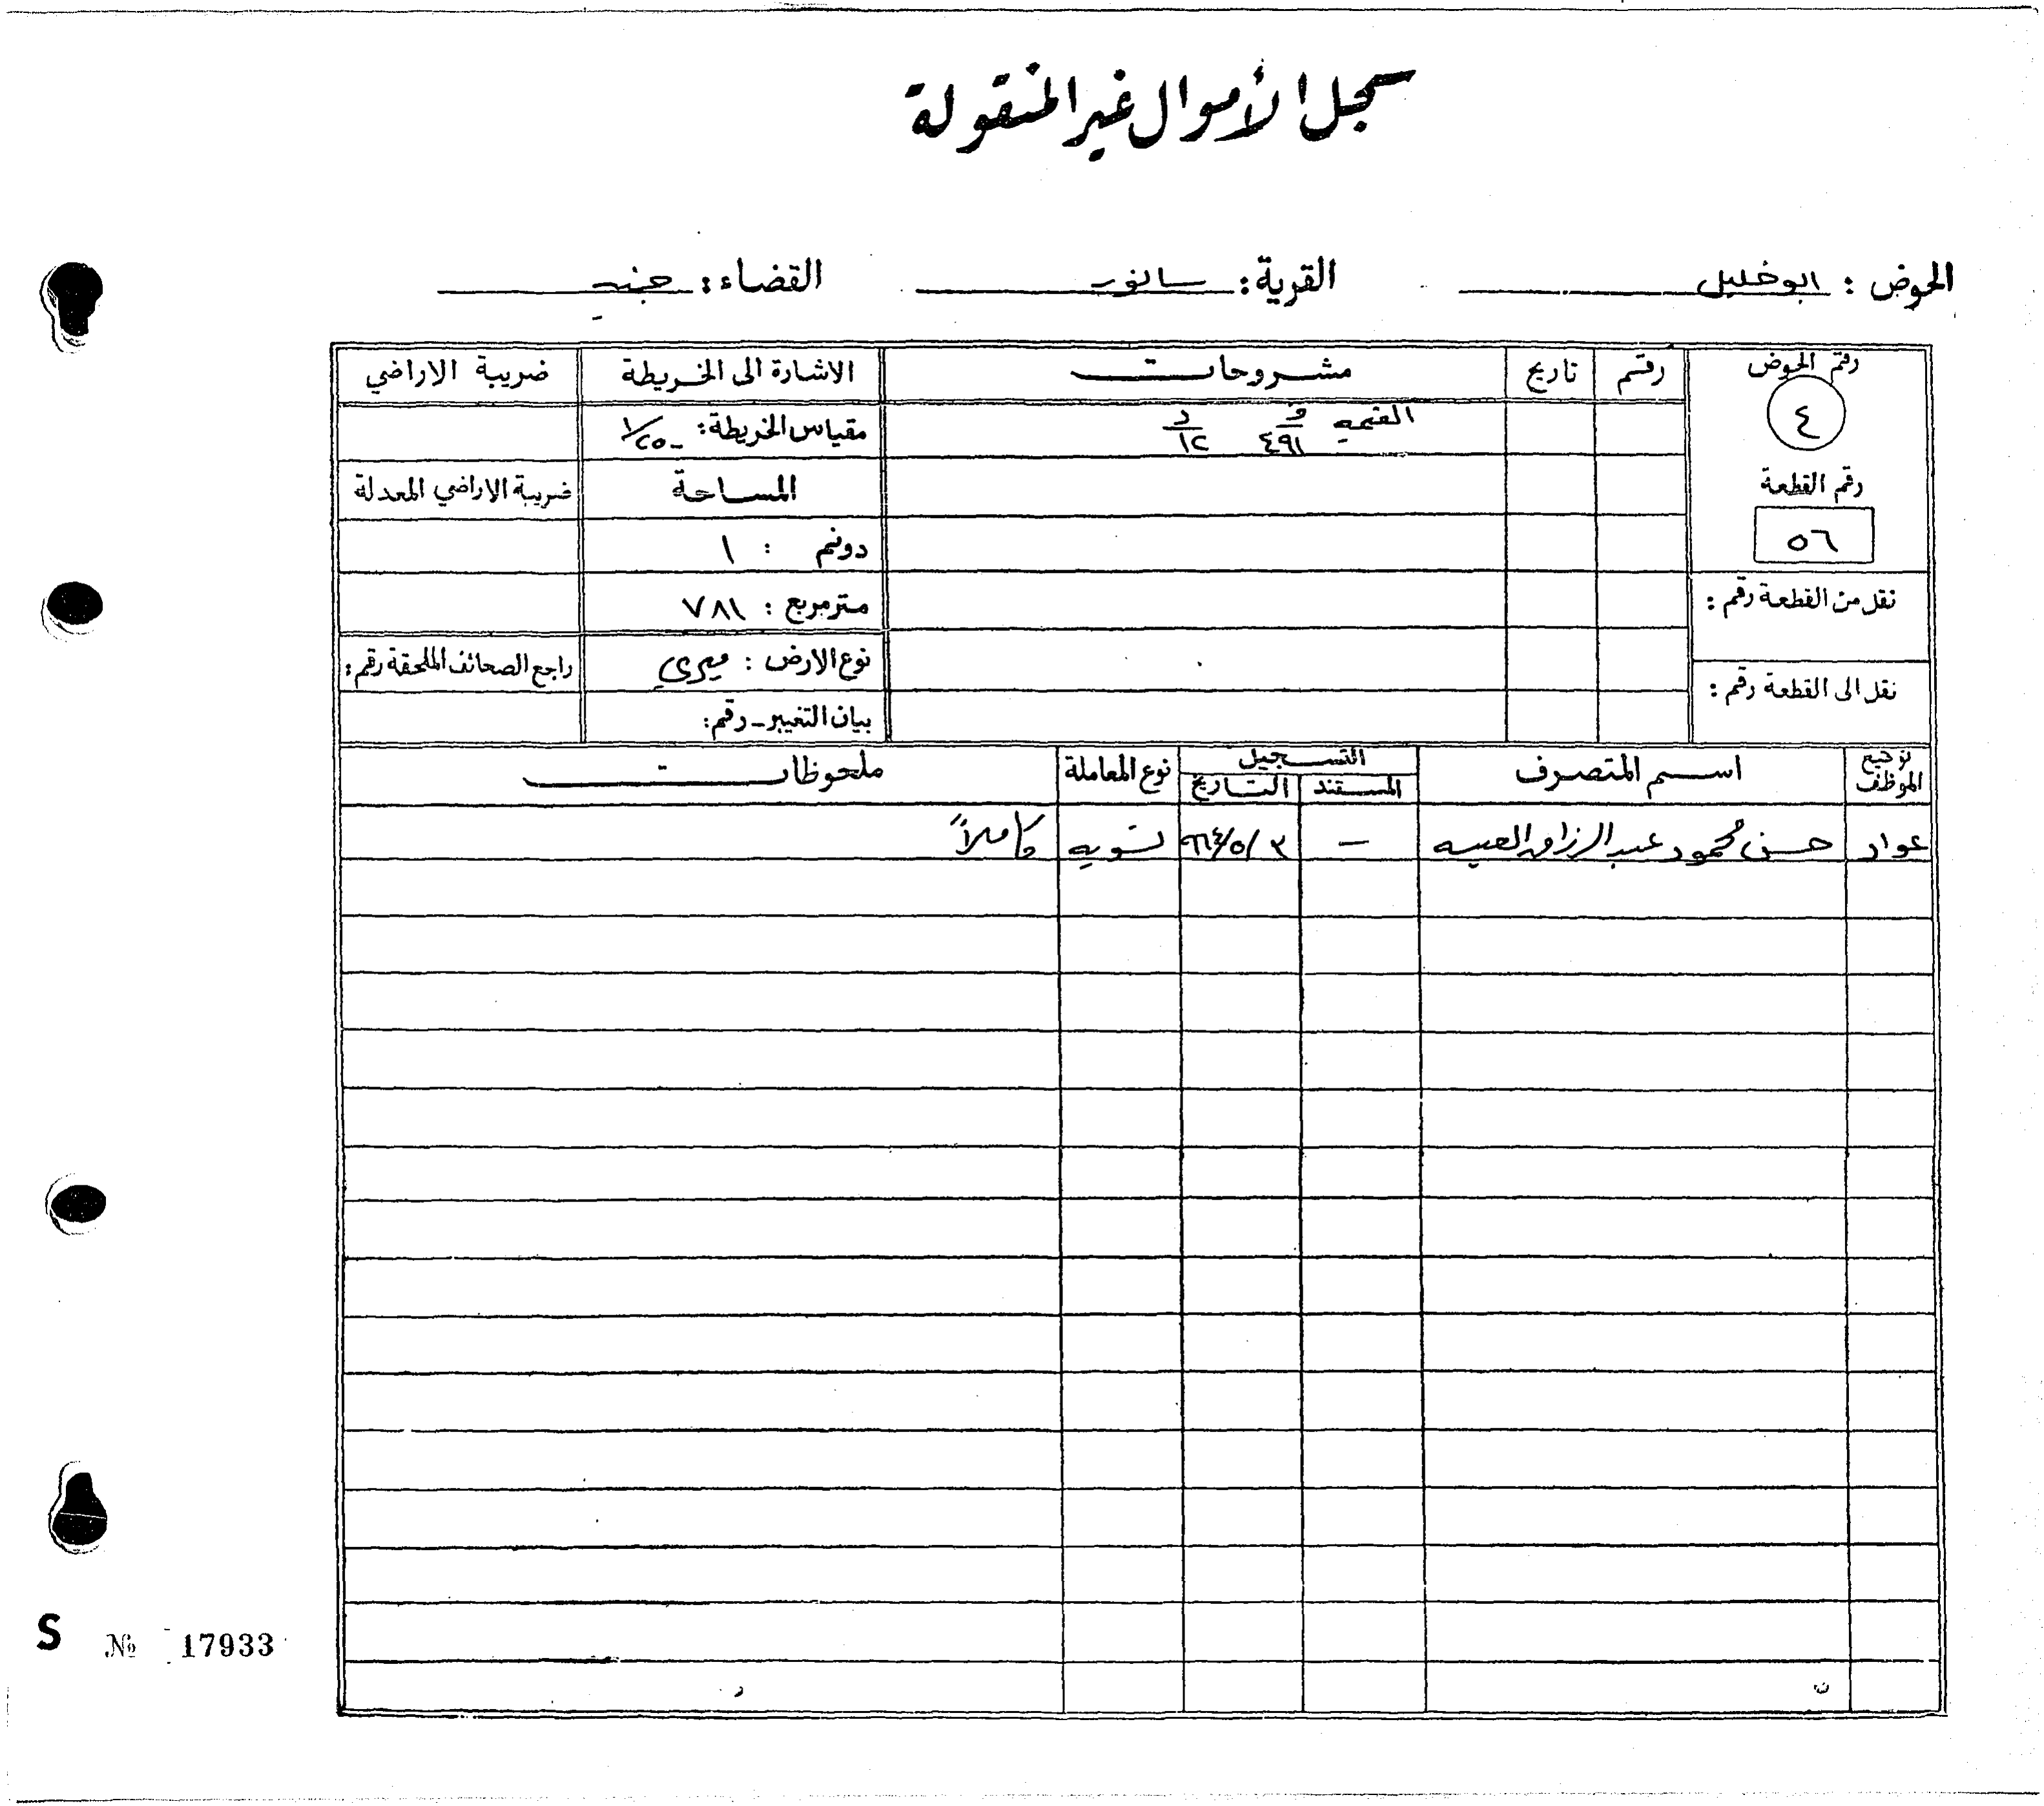 سجل الأموال غير المنقولة
الحوض : ابو خليل القرية : سانور القضاء : جنين
رقم الحوض رقم تاريخ مشروحات الاشارة الى الخريطة ضريبة الاراضي
٤ القيمه ف ٤٩١ د ١٢ مقياس الخريطة : ١/٢٥٠٠
رقم القطعة المساحة ضريبة الاراضي المعدلة
٥٦ دونم : ١
نقل من القطعة رقم : متر مربع : ٧٨١
نوع الارض : ميري راجع الصحائف الملحقة رقم :
نقل الى القطعة رقم : بيان التغيير - رقم :
توقيع الموظف اسم المتصرف التسجيل نوع المعاملة ملحوظات
المستند التاريخ
عواد حسن محمود عبد الرزاق - ٣ /٥/ ٩٦٤ تسويه كاملاً
S № 17933